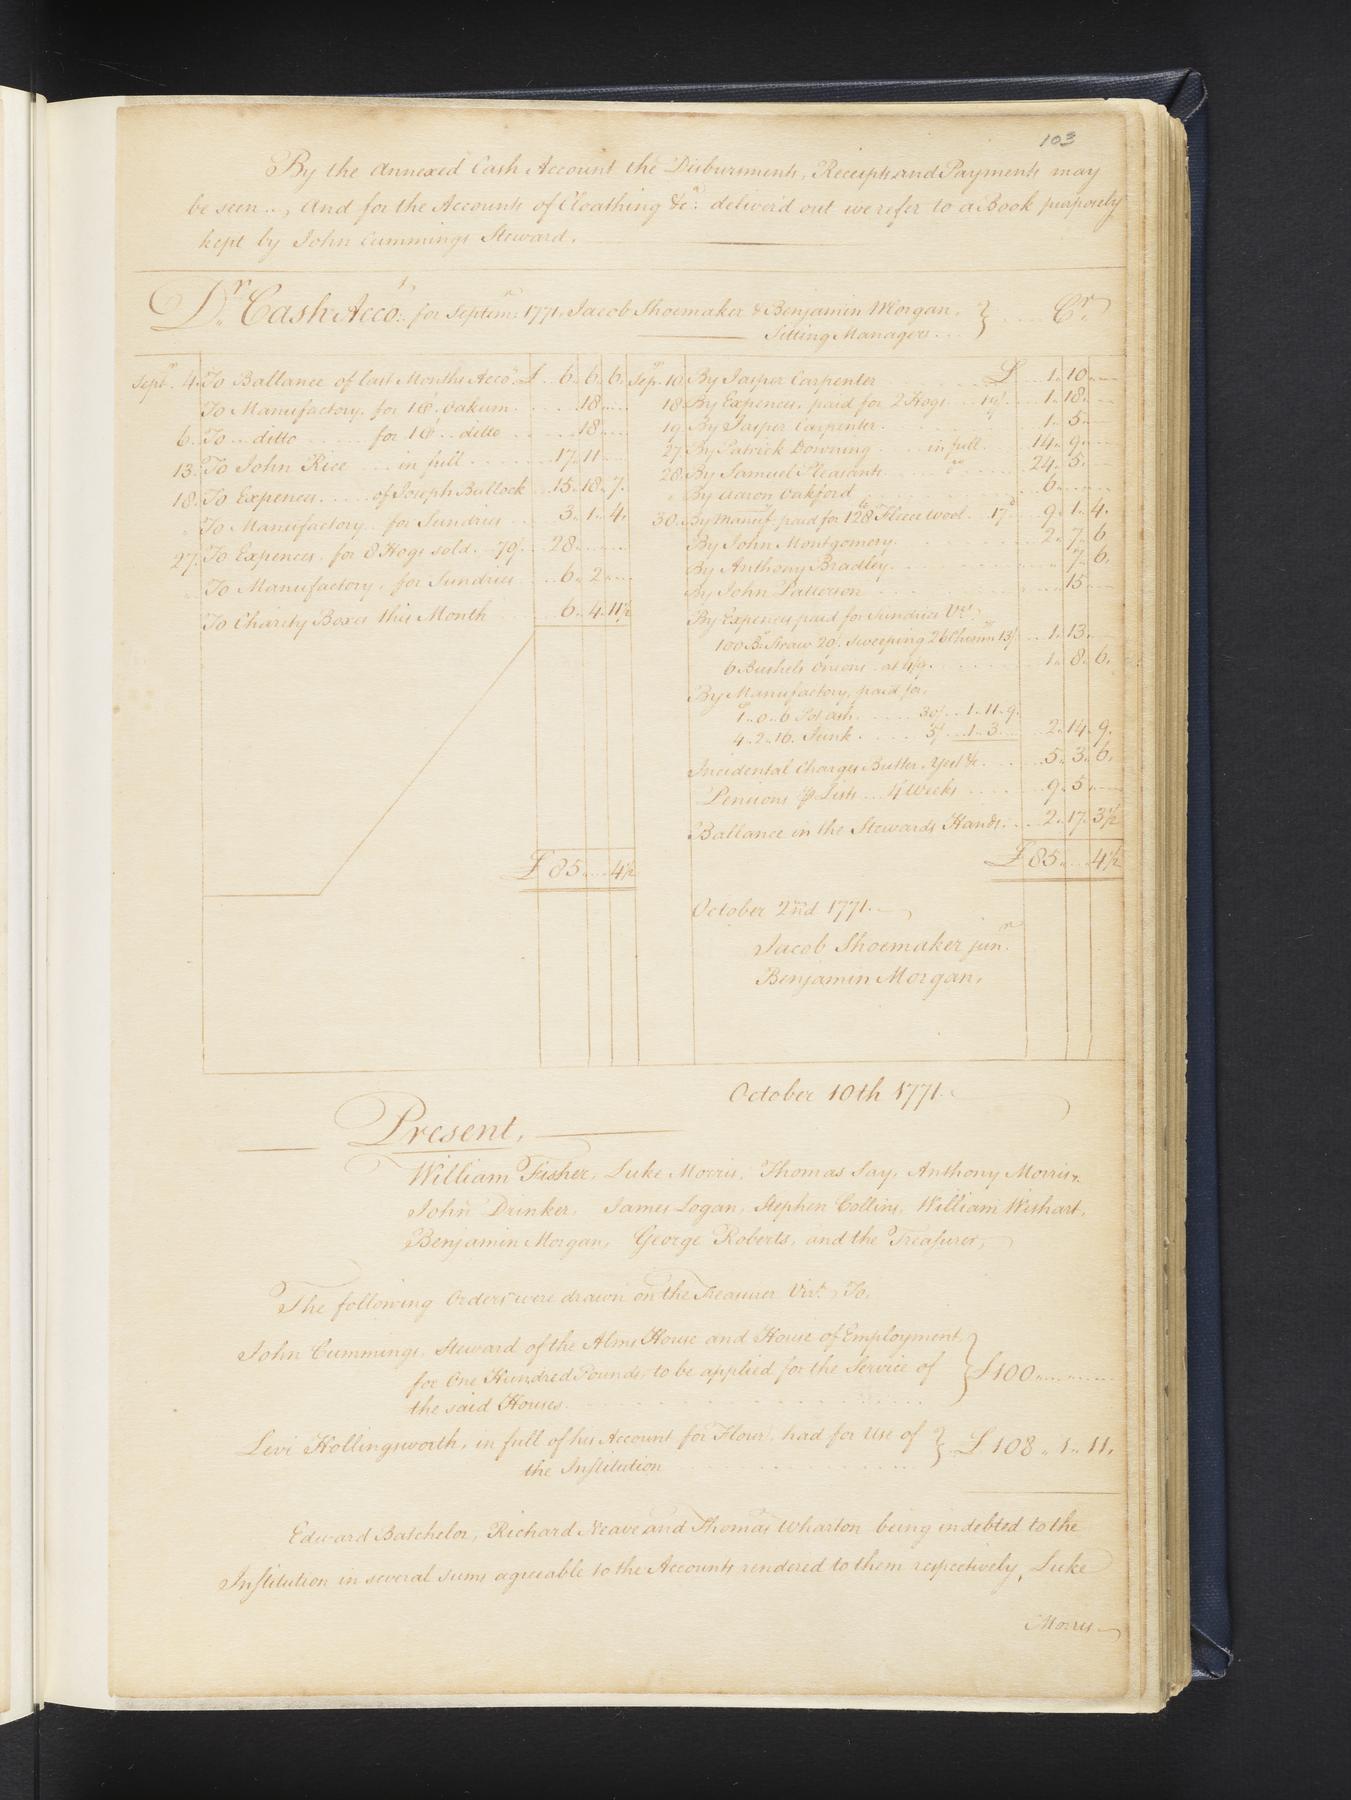 103
By the Annexed Cash Account the Disbursments, Receipts and Payments may
be seen.., And for the Accounts of Cloathing &ca. deliver'd out we refer to a Book purposely
kept by John Cummings Steward.
Dr. Cash Acco.t for Septem.r 1771. Jacob Shoemaker & Benjamin Morgan, } Cr.
Sitting Managers...
Sept.r 4. To Ballance of last Months Acco.t £ 6.. 6.. 6.
To Manufactory, for 1C. Oakum 18..
6. To ditto for 1C ditto 18..
13. To John Rice in full 17.. 11
18. To Expences of Joseph Bullock 15.. 18.. 7.
" To Manufactory for Sundries 3.. 1.. 4.
27. To Expences for 8 Hogs sold. 70/. 28..
" To Manufactory, for Sundries 6.. 2..
To Charity Boxes this Month 6.. 4.. 11½
£ 85.. .. 4½
Sep.r 10. By Jasper Carpenter £ 1.. 10
18. By Expences, paid for 2 Hogs 19/. 1.. 18..
19. By Jasper Carpenter. 1.. 5
27. By Patrick Downing in full. 14.. 9..
28. By Samuel Pleasants Do 24.. 5.
" By Aaron Oakford 6..
30. By Manuf. paid for 128 lb Fleece Wool. 17d 9.. 1.. 4.
By John Montgomery. 2.. 7.. 6
By Anthony Bradley. " 7.. 6.
By John Patterson 15
By Expences paid for Sundries Vizt.
100 Bs. Straw 20/. Sweeping 26 Chimns 13/ 1.. 13..
6 Bushels Onions at 4/9. 1.. 8.. 6.
By Manufactory, paid for,
1.. 0.. 6 Potash. 30/. 1.. 11.. 9.
4.. 2.. 16. Junk. 5/. 1.. 3. 2.. 14.. 9.
Incidental Charges Butter, Yest &c. 5.. 3.. 6.
Pensions ⅌ Lists 4 Weeks 9.. 5
Ballance in the Stewards Hands. 2.. 17. 3½
£ 85.. .. 4½
October 2nd 1771.
Jacob Shoemaker junr.
Benjamin Morgan,
October 10th 1771.
Present,
William Fisher, Luke Morris, Thomas Say, Anthony Morris,
John Drinker, James Logan, Stephen Collins, William Wishart,
Benjamin Morgan, George Roberts, and the Treasurer,
The following Orders were drawn on the Treasurer Vizt. To,
John Cummings, Steward of the Alms House and House of Employment
for One Hundred Pounds, to be applied for the Service of } £100..
the said Houses.
Levi Hollingsworth, in full of his Account for Flour, had for Use of } £ 108 .. 1.. 11.
the Institution
Edward Batchelor, Richard Neave and Thomas Wharton being indebted to the
Institution in several sums agreeable to the Accounts rendered to them respectively, Luke
Morris